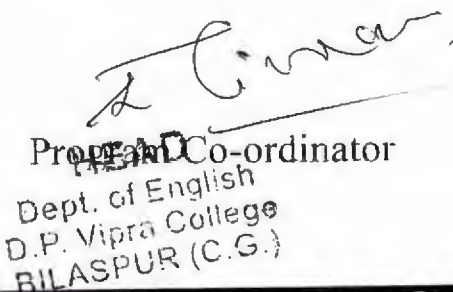 Program Co-ordinator
HEAD
Dept. of English
D.P. Vipra College
BILASPUR (C.G.)